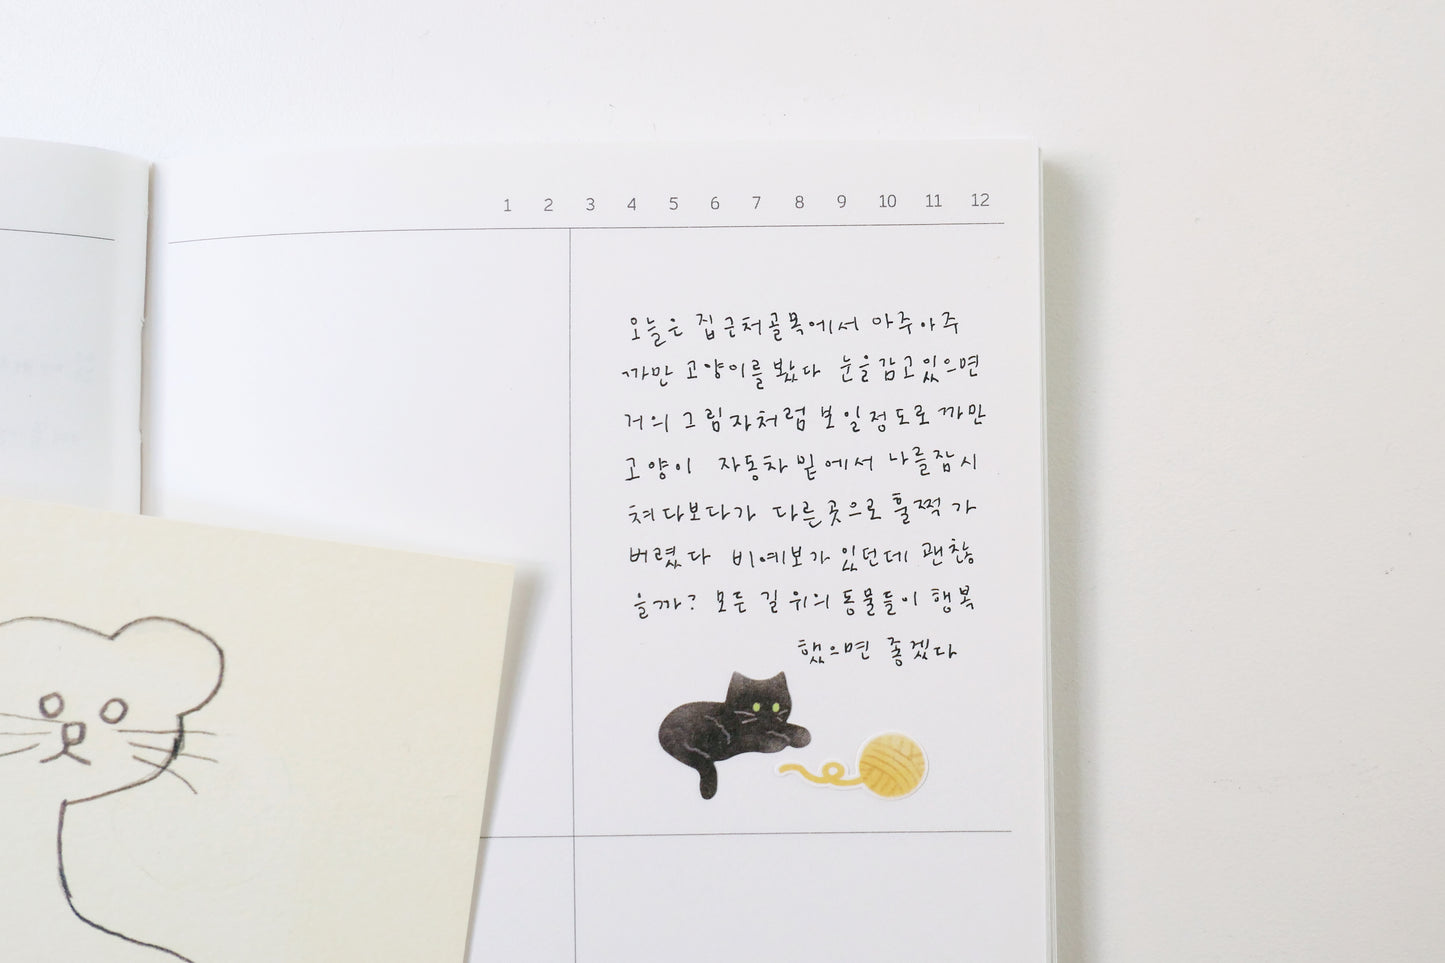 1 2 3 4 5 6 7 8 9 10 11 12
오늘은 집 근처 골목에서 아주아주
까만 고양이를 봤다 눈을 감고 있으면
거의 그림자처럼 보일 정도로 까만
고양이 자동차 밑에서 나를 잠시
쳐다보다가 다른 곳으로 훌쩍 가
버렸다 비예보가 있던데 괜찮
을까? 모든 길 위의 동물들이 행복
했으면 좋겠다